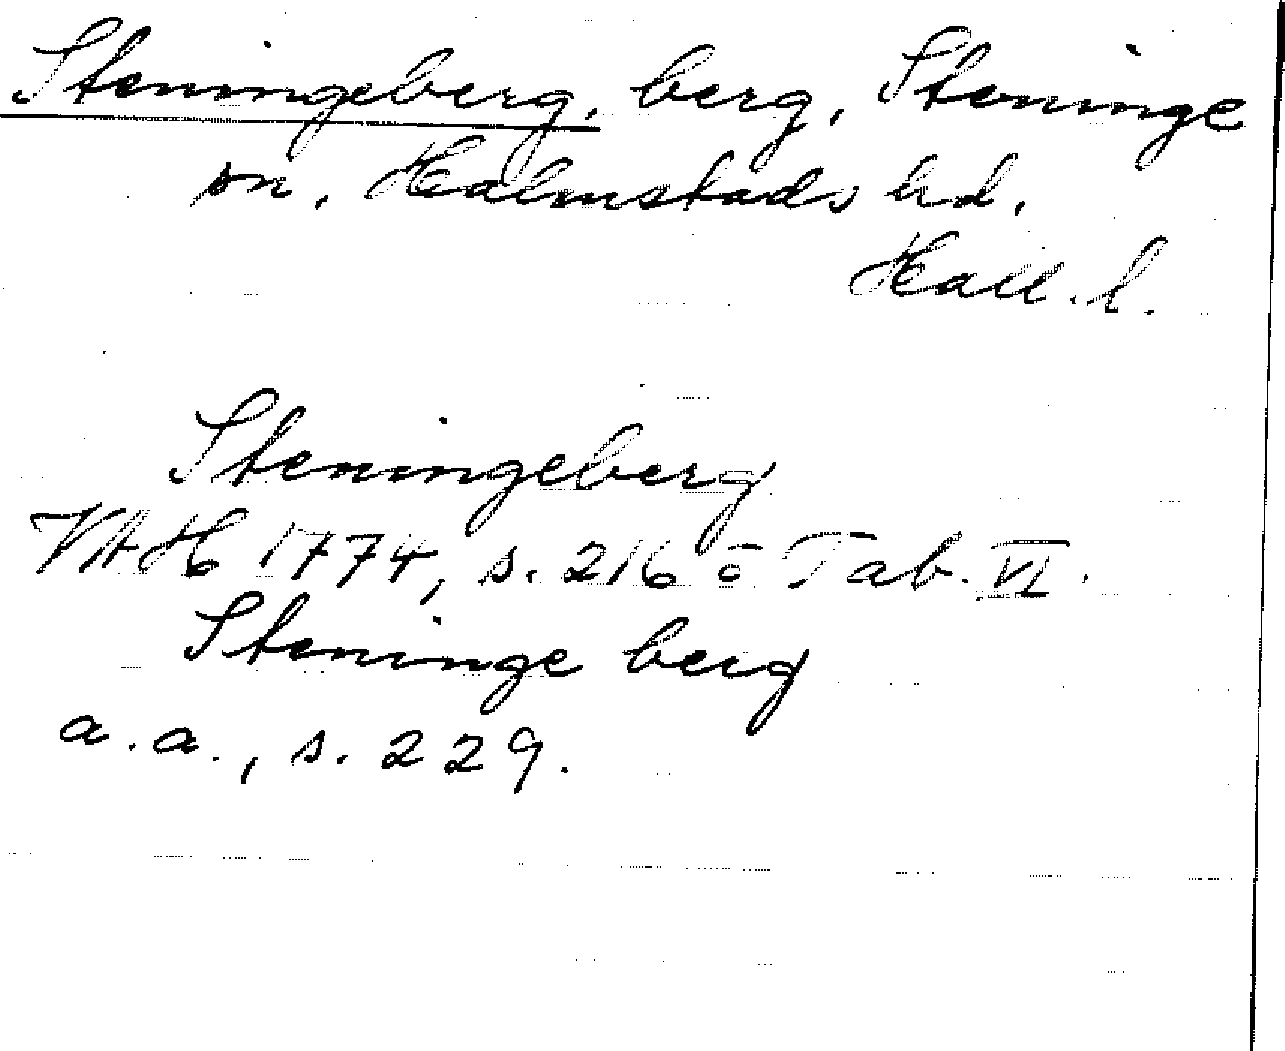 Steningeberg, berg, Steninge
sn, Halmstads hd.
Hall. l.
Steningeberg
VAH 1774, s. 216 o Tab. VI.
Steninge berg
a. a., s. 229.